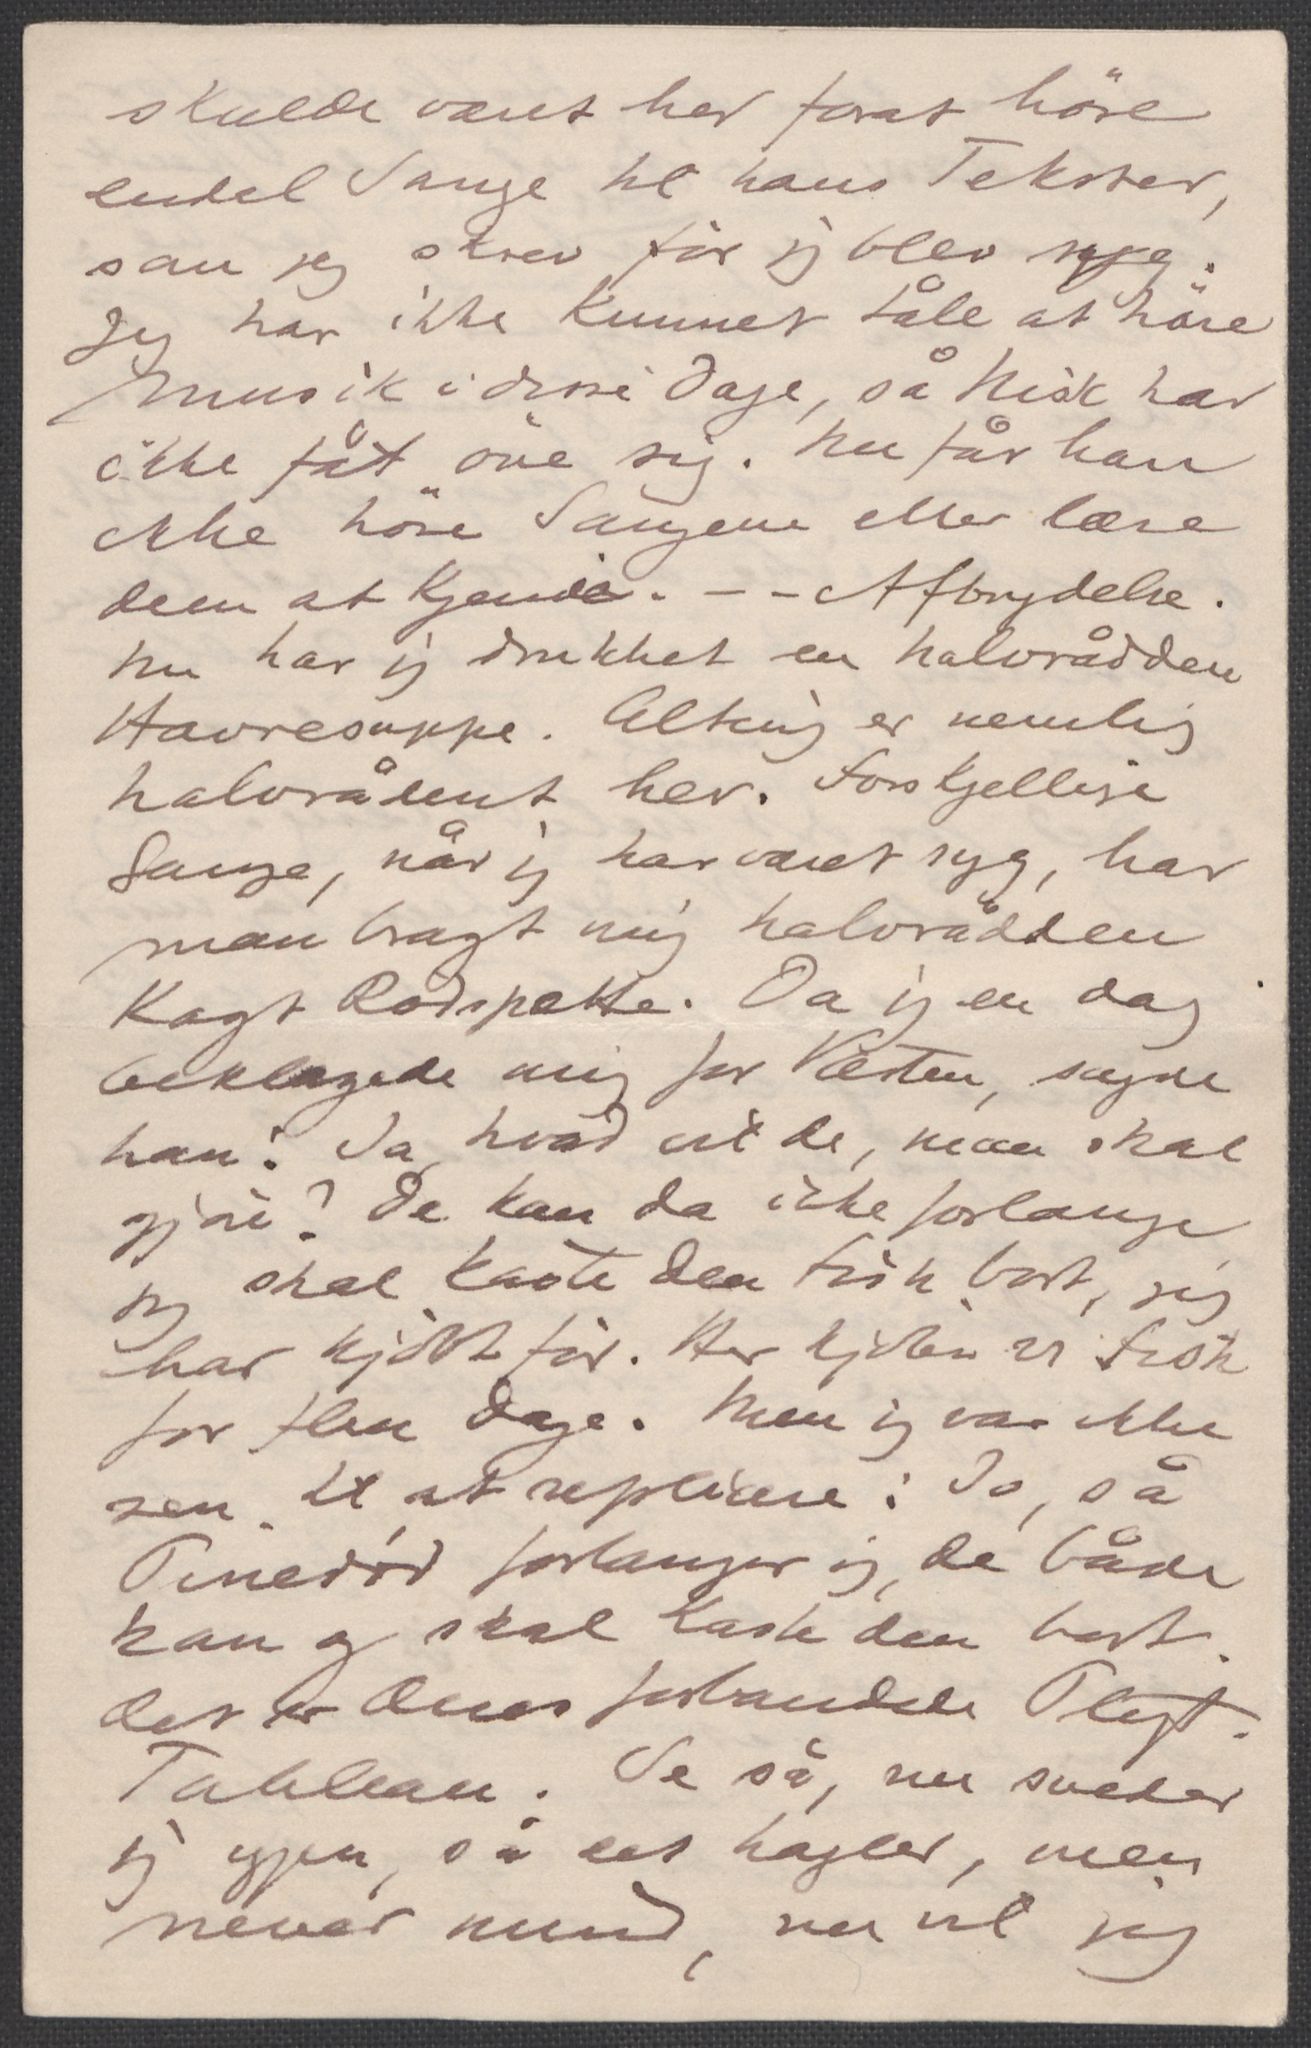 skulde været her forat höre
endel Sange til hans Tekster,
som jeg skrev för jeg blev syg.
Jeg har ikke kunnet tåle at höre
Musik i disse Dage, så Nisk har
ikke fåt öve sig. Nu får han
ikke höre Sangene eller lære
dem at kjende. - - Afbrydelse.
Nu har jeg drukket en halvrådden
Havresuppe. Alting er nemlig
halvrådent her. Forskjellige
Gange, når jeg har været syg, har
man bragt mig halvrådden
kogt Rødspætte. Da jeg en dag
beklagede mig for Værten, sagde
han: Ja, hvad vil de, man skal
gjöre? De kan da ikke forlange
jeg skal kaste den Fisk bort, jeg
har kjöbt för. Her kjöber vi Fisk
for flere Dage. Men jeg var ikke
sen til at replicere: Jo, så
Pinedød forlanger jeg, de både
kan og skal kaste den bort.
det er Deres forbandede Pligt.
Tableau. Se så, nu sveder
jeg igjen, så det hagler, men
never mind, nu vil jeg